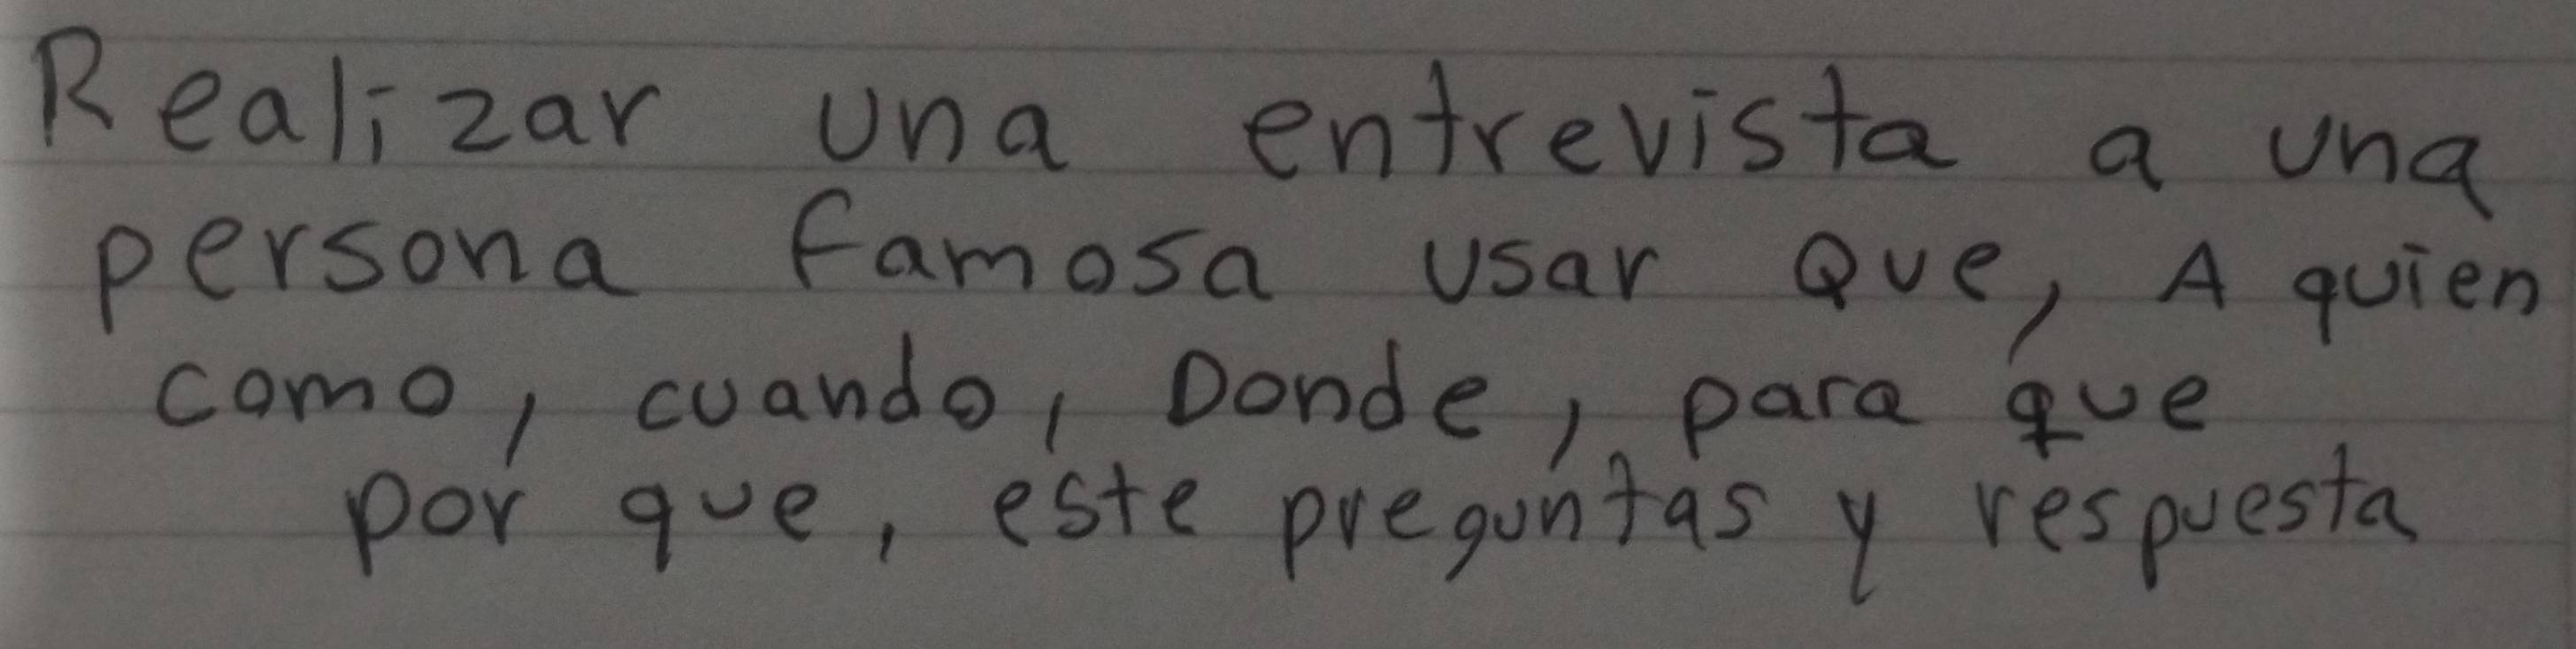 Realizar una entrevista a una
persona famosa usar Que, A quien
como, cuando, Donde, para que
por que, este preguntas y respuesta